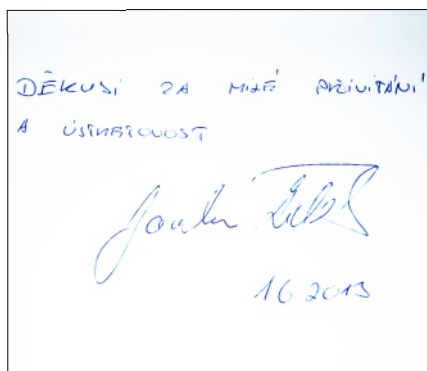 DĚKUJI ZA MILÉ PŘIVÍTÁNÍ
A ÚSTRETOVOST
1 6 2013